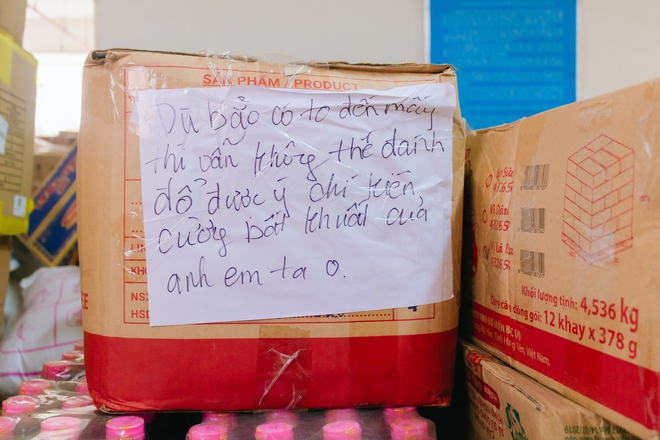 SẢN PHẨM / PRODUCT
Dù bão có to đến mấy
thì vẫn không thể đánh
đổ được ý chí kiên
cường bất khuất của
anh em ta 0.
NSX
HSD
Khối lượng tịnh: 4,536 kg
Quy cách đóng gói: 12 khay x 378 g